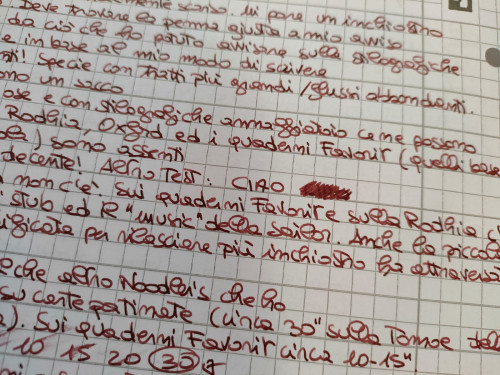 Deve trovare la penna giusta a mio avviso
da ciò che ho potuto avvisare sulle stilografiche
e in base al mio modo di scrivere
! Specie con tratti più grandi / flussi abbondanti.
un sacco
e con stilografiche annaffiatoio come possono
Rodhia, Oxford ed i quaderni Favonir (quelli base
) sono assenti
decente! Altro Test: CIAO
non c'è! Sui quaderni Favonir e sulla Rodhia
stub ed le "music" della sailor. Anche la piccola
per rilasciare più inchiostro ha attraversa
che altro Noodler's che ho
su carte patinate (circa 30" sulla Tomoe
). Sui quaderni Favonir circa 10-15".
10 15 20 30